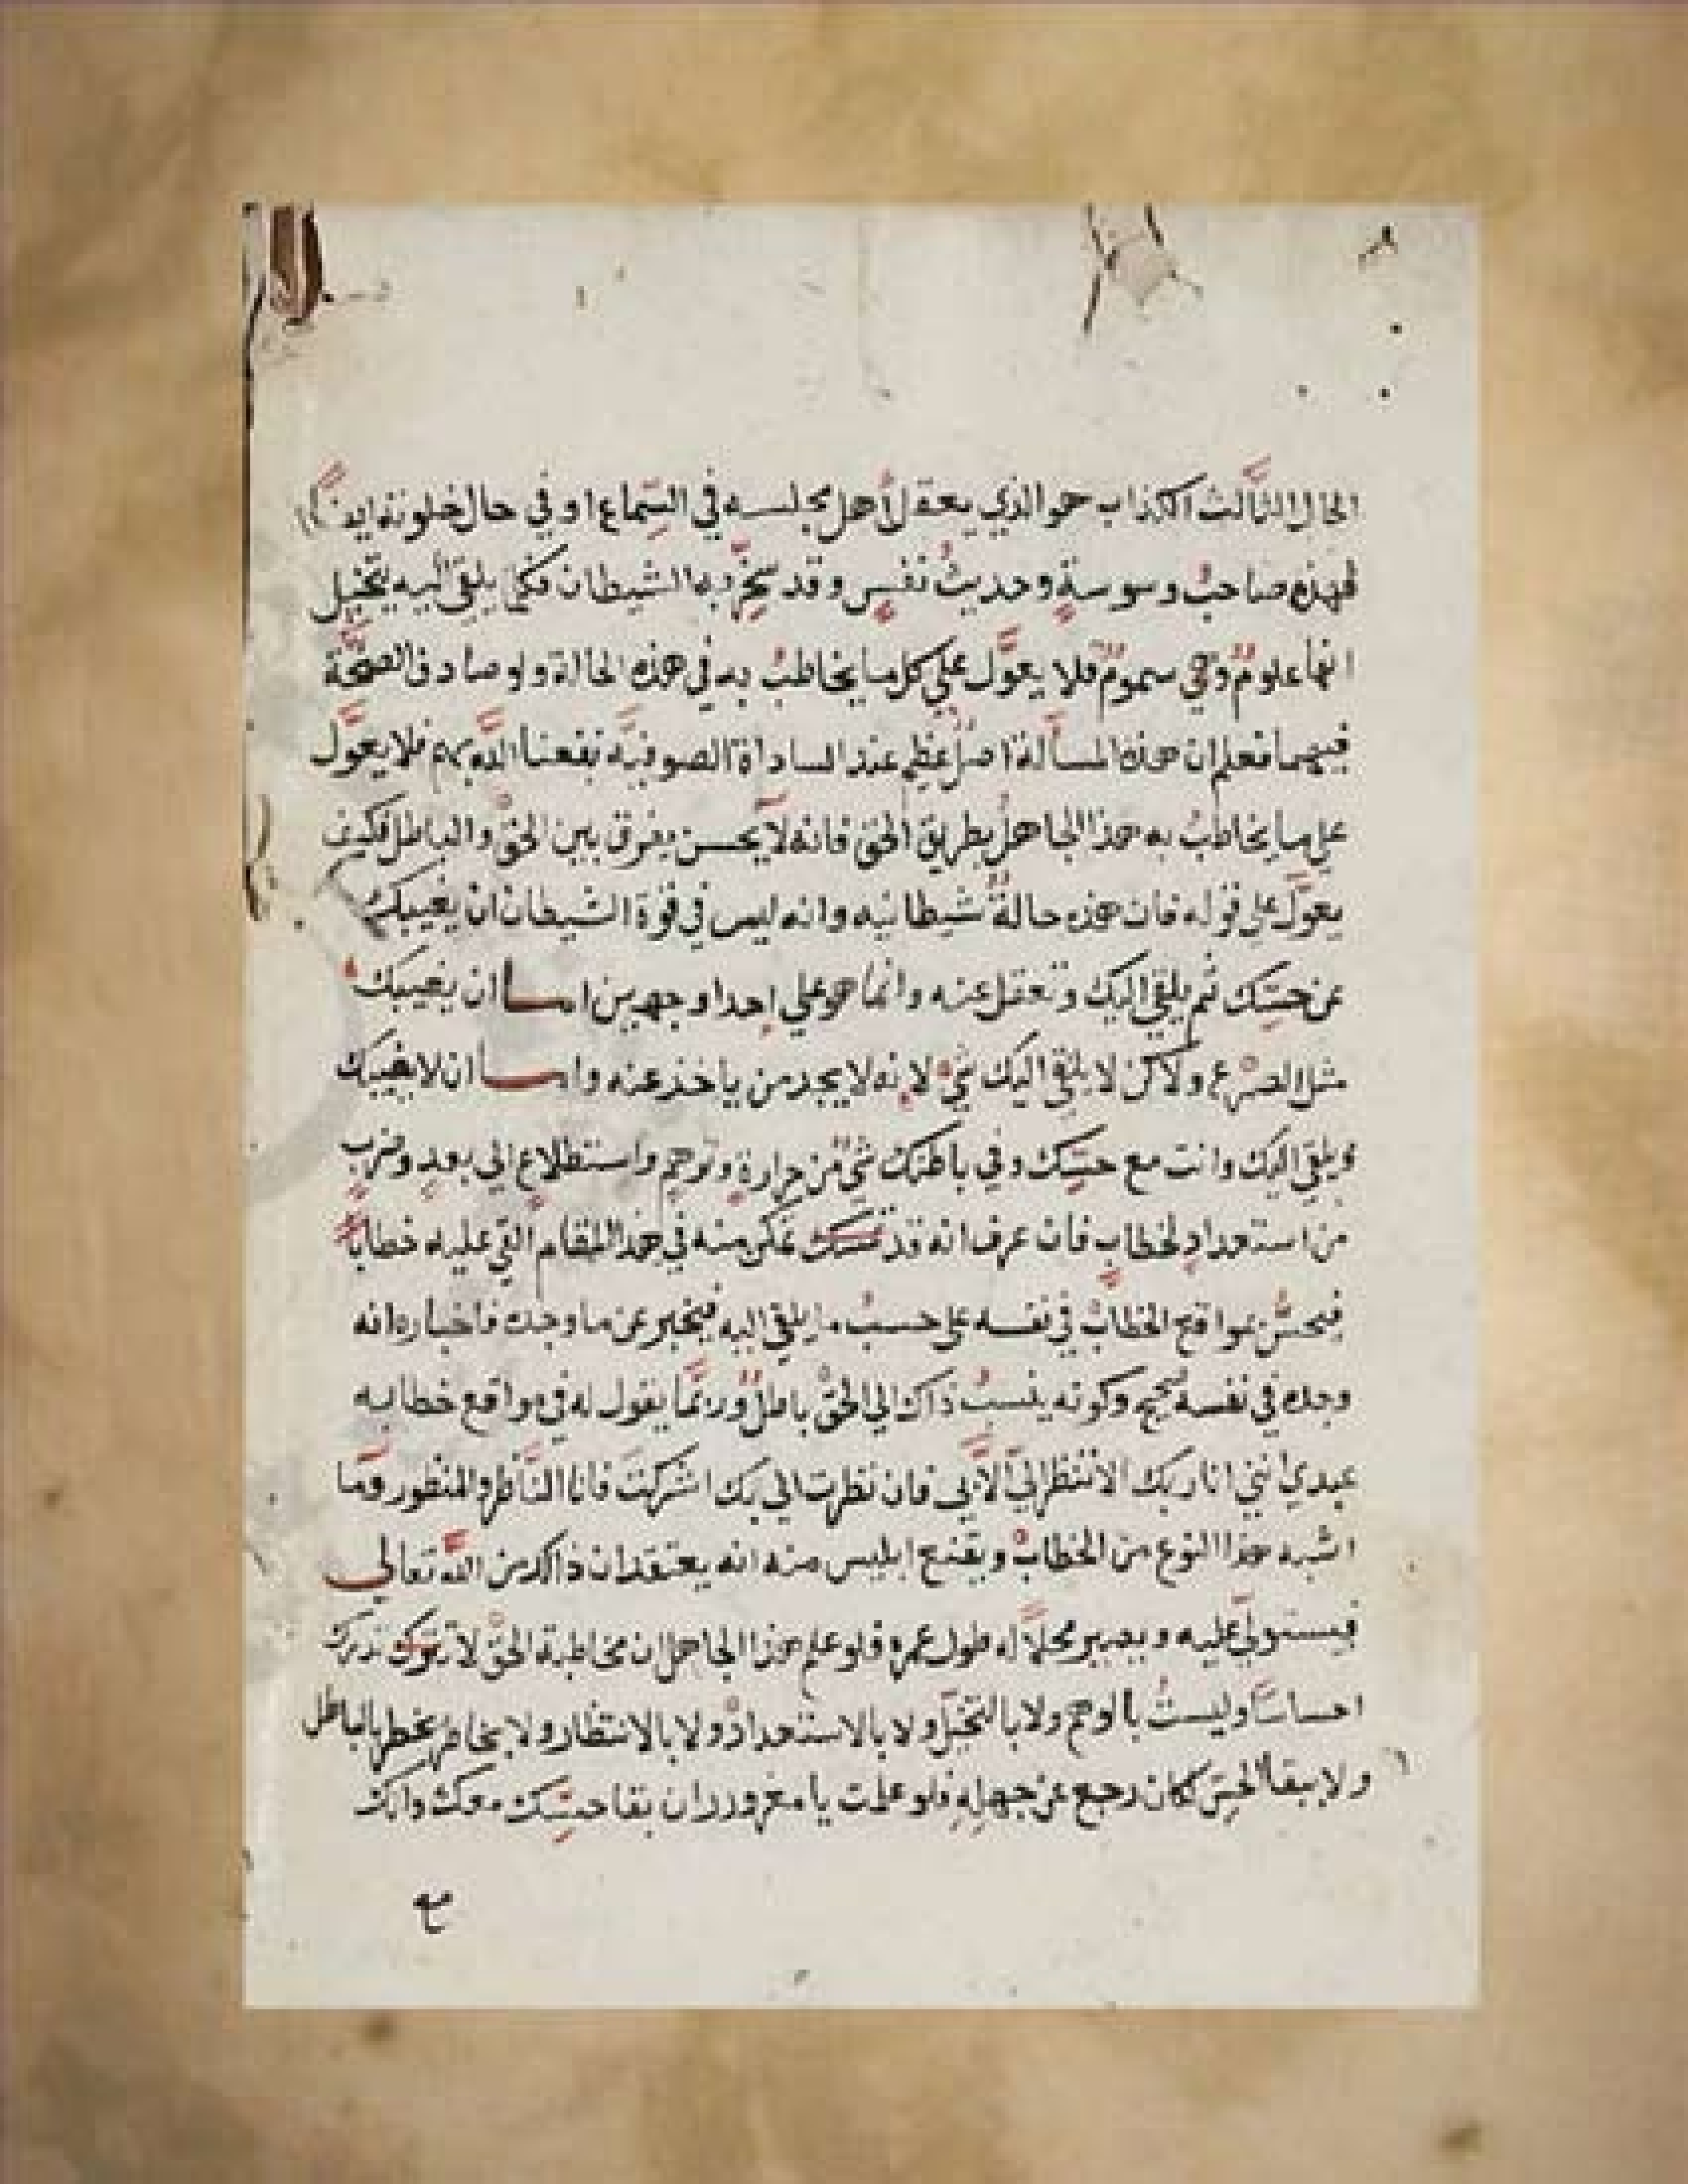 الحال الثالث الكذاب هو الذي يعقل أهل مجلسه في السّماع او في حال خلوته ايضاً
فهذه صاحبُ وسوسةٍ وحديثُ نفسٍ وقد سخّر به الشيطان فكلما يلقى اليه يتخيل
انما علومٌ وهي سمومٌ فلا يعوّل على كل ما يخاطبُ به في هذه الحالة ولو صادف الصّحّة
فيهما فعلم ان هذه المسألة اصلٌ عظيم عند الساداة الصوفيّه نفعنا اللّه بهم فلا يعوّل
على ما يخاطبُ به هذا الجاهلُ بطريق الحق فانه لا يحسن يفرق بين الحقّ والباطل فكيف
يعوّل على قوله فان هذه حالةٌ شيطانيه وانه ليس في قوة الشيطان ان يغيبك
عن حسّك ثم يلقي اليك وتعقل عنه وانما هو على إحدا وجهين اما ان يغيبك
مثل الصرع ولاكن لا يلقي اليك شيء لانه لا يجد من ياخذ عنه واما ان لا يغيبك
ويلقي اليك وانت مع حسّك وفي باطنك شيءٌ من حرارةٍ وتوهمٍ واستطلاعٍ الى بعدٍ وضربٍ
من استعدادٍ لخطابٍ فان عرف انه قد تمكن منه في هذا المقام القي عليه خطاباً
فيحسّن بمواقع الخطاب في نفسه على حسبُ ما يلقي اليه فيخبر عن ما وجده فاخباره انه
وجده في نفسه صحيح وكونه ينسبُ ذاك الى الحقّ باطلٌ وربّما يقول له في مواقع خطابه
عبدي انني انا ربك لا تنظر اليّ الاّ بي فان نظرت الي بك اشركت فانا النّاظر والمنظور وما
اشبه هذا النوع من الخطاب ويقنع ابليس منه انه يعتقد ان ذاك من اللّه تعالى
فيستولى عليه ويصير محلّاً له طول عمره فلو علم هذا الجاهل ان مخاطبة الحقّ لا تدرك
احساسًا وليستُ بالوهم ولا بالتخيّل ولا بالاستعداد ولا بالانتظار ولا بخاطرٍ يخطر بالباطل
ولا يبقا الحسّ لكان رجع عن جهله فلو علمت يا مغرور ان بقا حسّك معك وانك
مع